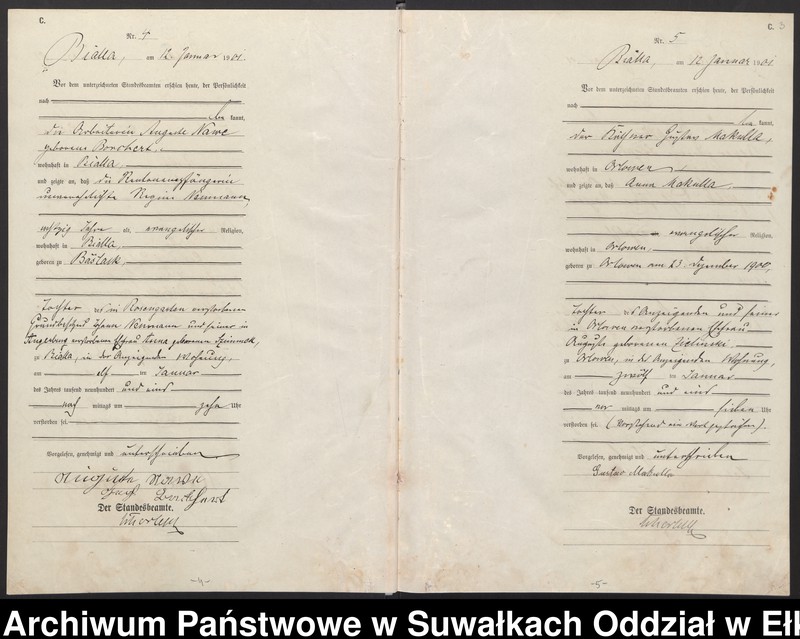 C.
Nr. 4
Bialla, am 12. Januar 1901.
Vor dem unterzeichneten Standesbeamten erschien heute, der Persönlichkeit
nach
kannt,
die Arbeiterin
geborene Borchert
wohnhaft in Bialla
und zeigte an, daß die Rentenempfängerin
unverehelichte Regine Neumann
achtzig Jahre alt, evangelischer Religion,
wohnhaft in Bialla
geboren zu Bäslack
Tochter des in Rosengarten verstorbenen
Grundbesitzers Johann Neumann und seiner in
Angerburg verstorbenen Ehefrau geborenen
zu Bialla, in der Anzeigenden Wohnung,
am elf ten Januar
des Jahres tausend neunhundert und eins
nach mittags um zehn Uhr
verstorben sei.
Vorgelesen, genehmigt und unterschrieben
geb.
Der Standesbeamte.
-4-
C. 3
Nr. 5
Bialla, am 12. Januar 1901.
Vor dem unterzeichneten Standesbeamten erschien heute, der Persönlichkeit
nach
kannt,
der Käthner Gustav Makulla,
wohnhaft in Orlowen
und zeigte an, daß Anna Makulla
evangelischer Religion,
wohnhaft in Orlowen
geboren zu Orlowen am 23. Dezember 1900,
Tochter des Anzeigenden und seiner
in Orlowen verstorbenen Ehefrau
Auguste geborenen Zielinski
zu Orlowen, in des Anzeigenden Wohnung,
am zwölf ten Januar
des Jahres tausend neunhundert und eins
vor mittags um sieben Uhr
verstorben sei. (Vorstehend ein Wort gestrichen).
Vorgelesen, genehmigt und unterschrieben
Gustav Makulla
Der Standesbeamte.
-5-
Archiwum Państwowe w Suwałkach Oddział w Eł